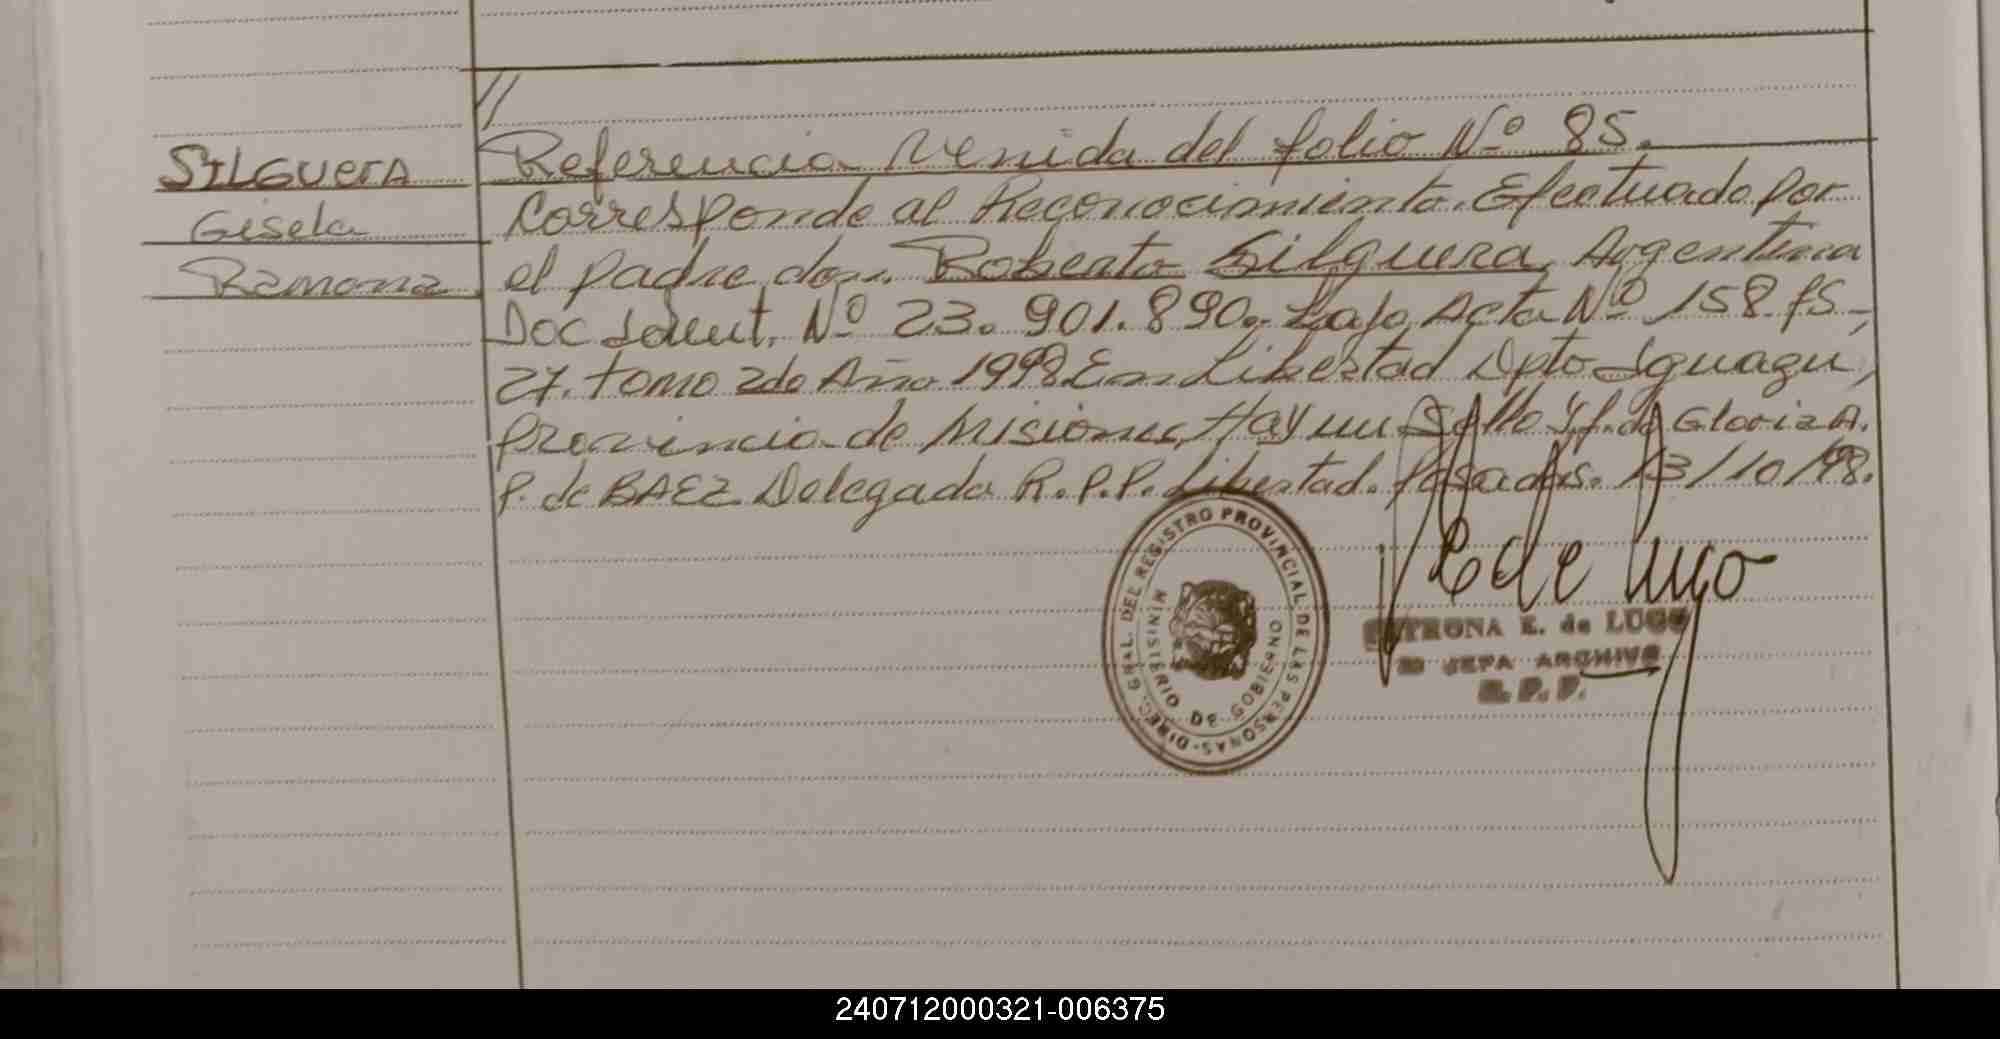 //
SILGUERA
Gisela
Ramona
Referencia Venida del folio Nº 85.
Corresponde al Reconocimiento. Efectuado por
el padre don. Roberto Silguera, Argentino
Doc Ident. Nº 23.901.890.- Bajo Acta Nº 158. fs-,
27. tomo 2do Año 1998 En Libertad Dpto Iguazu,
Provincia de Misiones, Hay un Sello y f. de Gloria A.
P. de BAEZ Delegada R.P.P. Libertad. Posadas. 13/10/98.
DIREC. GRAL. DEL REGISTRO PROVINCIAL DE LAS PERSONAS-
MINISTERIO DE GOBIERNO
MISIN
E de Lugo
PETRONA E. de LUGO
JEFA ARCHIVO
R.P.P.
240712000321-006375